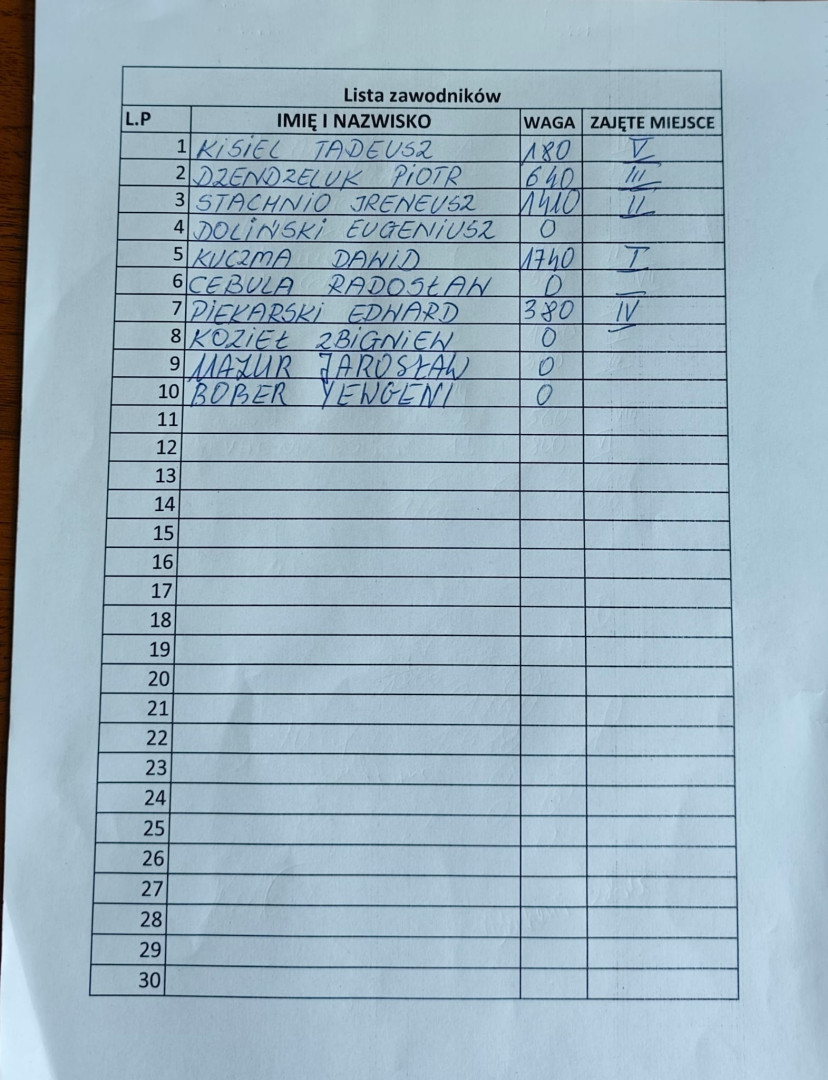 Lista zawodników
L.P IMIĘ I NAZWISKO WAGA ZAJĘTE MIEJSCE
1 KISIEL TADEUSZ 180 V
2 DZENDZELUK PIOTR 640 III
3 STACHNIO IRENEUSZ 1410 II
4 DOLIŃSKI EUGENIUSZ 0
5 KUCZMA DAWID 1740 I
6 CEBULA RADOSŁAW 0
7 PIEKARSKI EDWARD 380 IV
8 KOZIEŁ ZBIGNIEW 0
9 MAZUR JAROSŁAW 0
10 BOBER YEWGENI 0
11
12
13
14
15
16
17
18
19
20
21
22
23
24
25
26
27
28
29
30